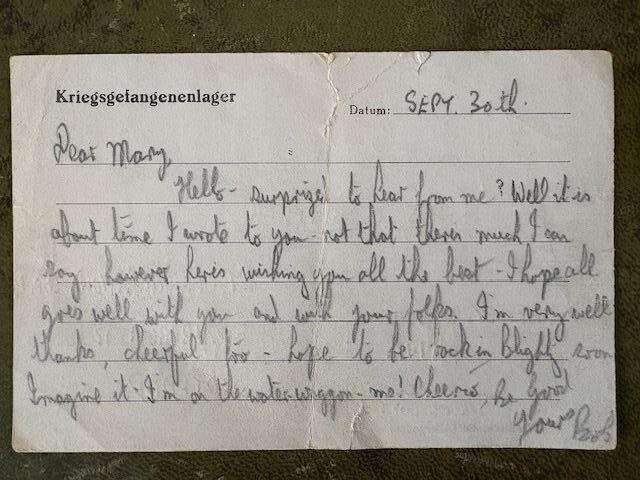 Kriegsgefangenenlager
Datum: SEPT. 30th.
Dear Mary
Hello - surprized to hear from me? Well it is
about time I wrote to you - not that theres much I can
say, however heres wishing you all the best - I hope all
goes well with you and with your folks. I'm very well
thanks, cheerful too - hope to be back in Blighty soon
Imagine it - I'm on the water-waggon - me! Cheerio, be good
Yours Bob